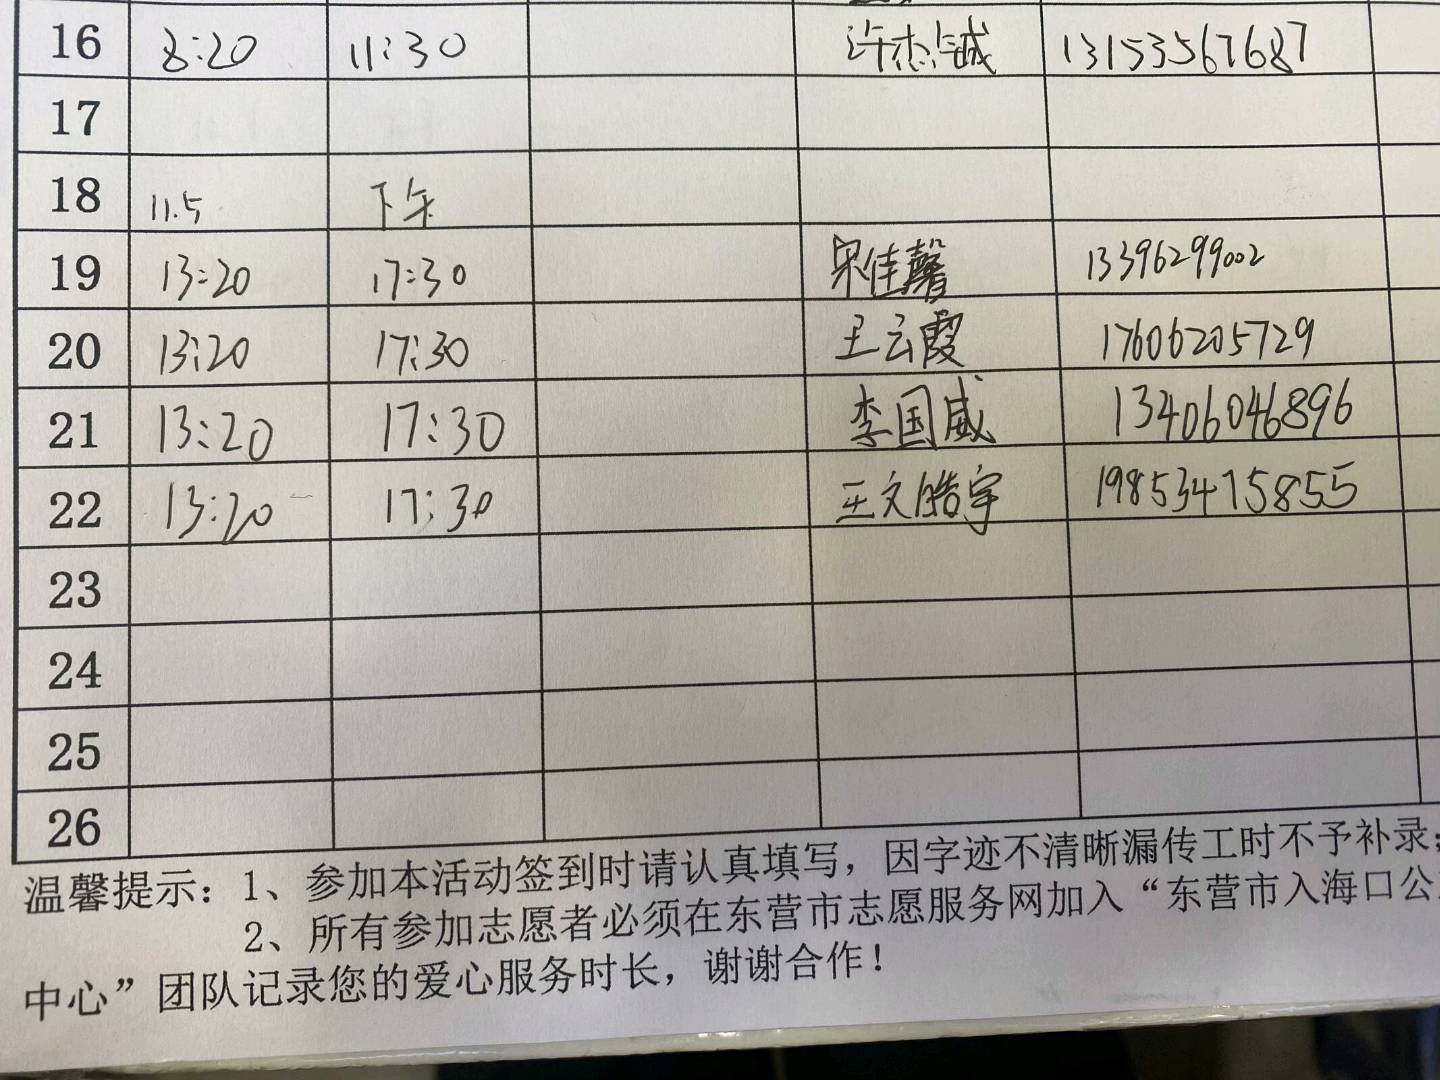 16 8:20 11:30 许杰诚 13153567687
17
18 11.5 下午
19 13:20 17:30 宋佳馨 13396299002
20 13:20 17:30 王云霞 17606205729
21 13:20 17:30 李国威 13406046896
22 13:20 17:30 王文皓宇 19853475855
23
24
25
26
温馨提示：1、参加本活动签到时请认真填写，因字迹不清晰漏传工时不予补录；
2、所有参加志愿者必须在东营市志愿服务网加入“东营市入海口公
中心”团队记录您的爱心服务时长，谢谢合作！